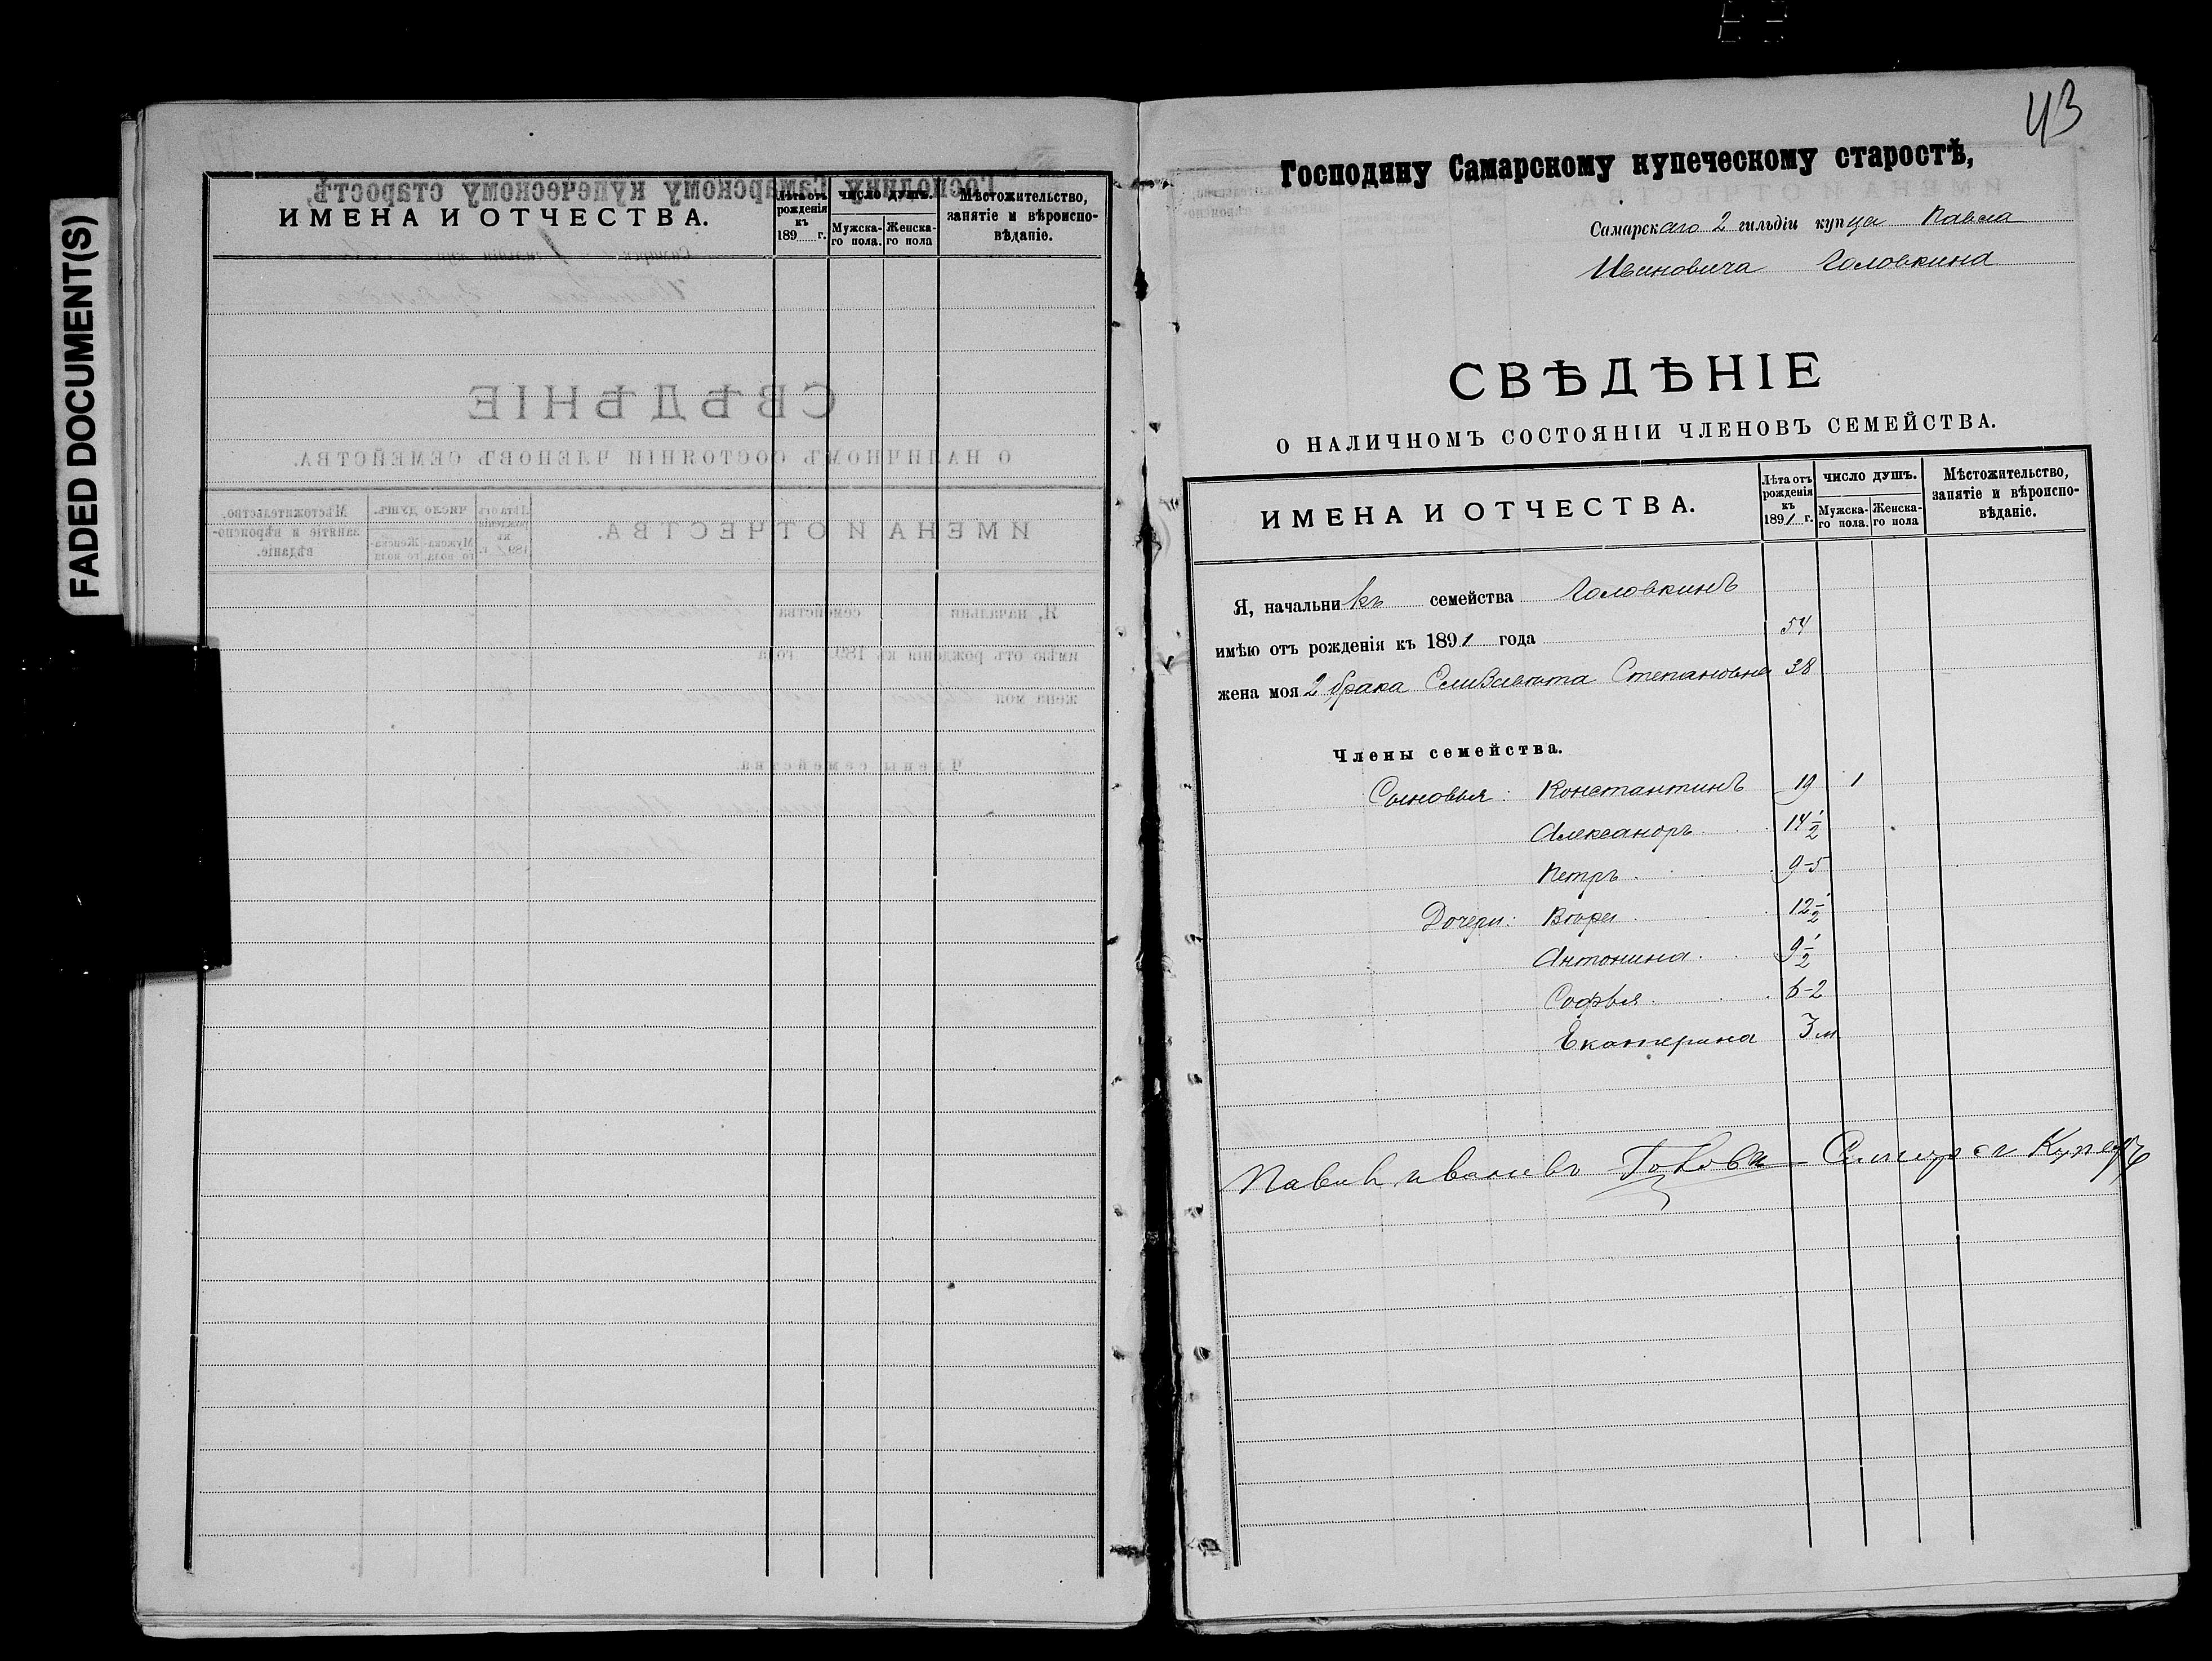 FADED DOCUMENT(S)
ИМЕНА И ОТЧЕСТВА.
Лѣта отъ рожденія къ 189 г.
число душъ.
Мужска-го пола.
Женска-го пола
Мѣстожительство, занятіе и вѣроиспо-вѣданіе.
43
Господину Самарскому купеческому старостѣ,
Самарскаго 2 гильдіи купца Павла
Ивановича Головкина
СВѢДѢНІЕ
О НАЛИЧНОМЪ СОСТОЯНІИ ЧЛЕНОВЪ СЕМЕЙСТВА.
ИМЕНА И ОТЧЕСТВА.
Лѣта отъ рожденія къ 1891 г.
число душъ.
Мужска-го пола.
Женска-го пола
Мѣстожительство, занятіе и вѣроиспо-вѣданіе.
Я, начальникъ семейства Головкинъ
имѣю отъ рожденія къ 1891 года 54
жена моя 2 брака Елизавѣта Степановна 38
Члены семейства.
Сыновья: Константинъ 19 1
Александръ 14 1/2
Петръ 9-5
Дочери: Вѣра 12 1/2
Антонина 9 1/2
Софья 6-2
Екатерина 3 м